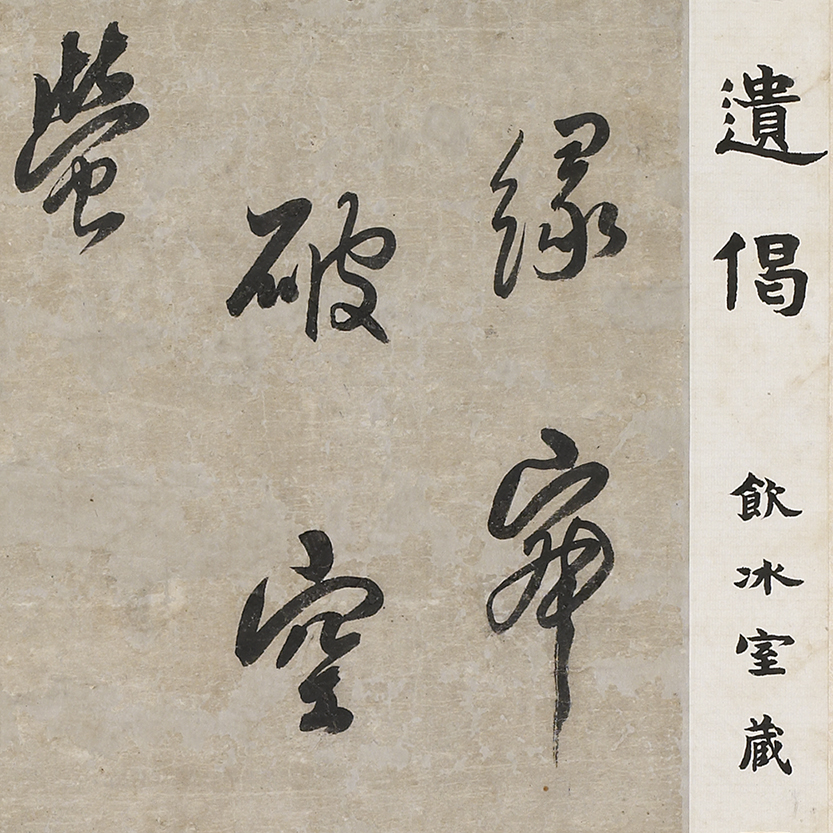 遺偈 飲冰室藏
緣
破空
螢